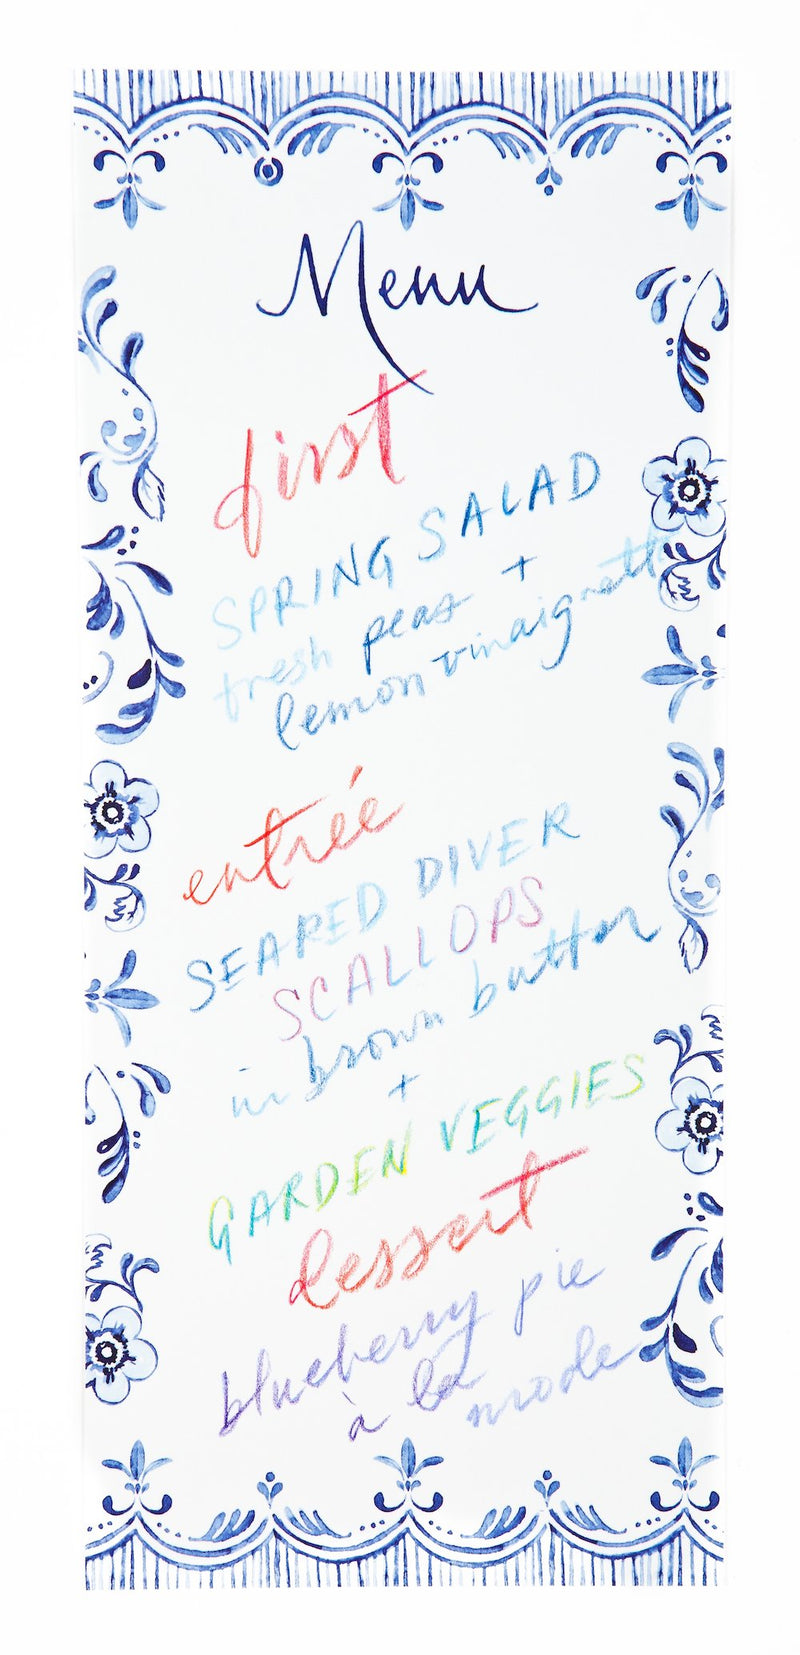 Menu
first
SPRING SALAD
fresh peas +
lemon vinaigrette
entrée
SEARED DIVER
SCALLOPS
in brown butter
+
GARDEN VEGGIES
dessert
blueberry pie
à la mode